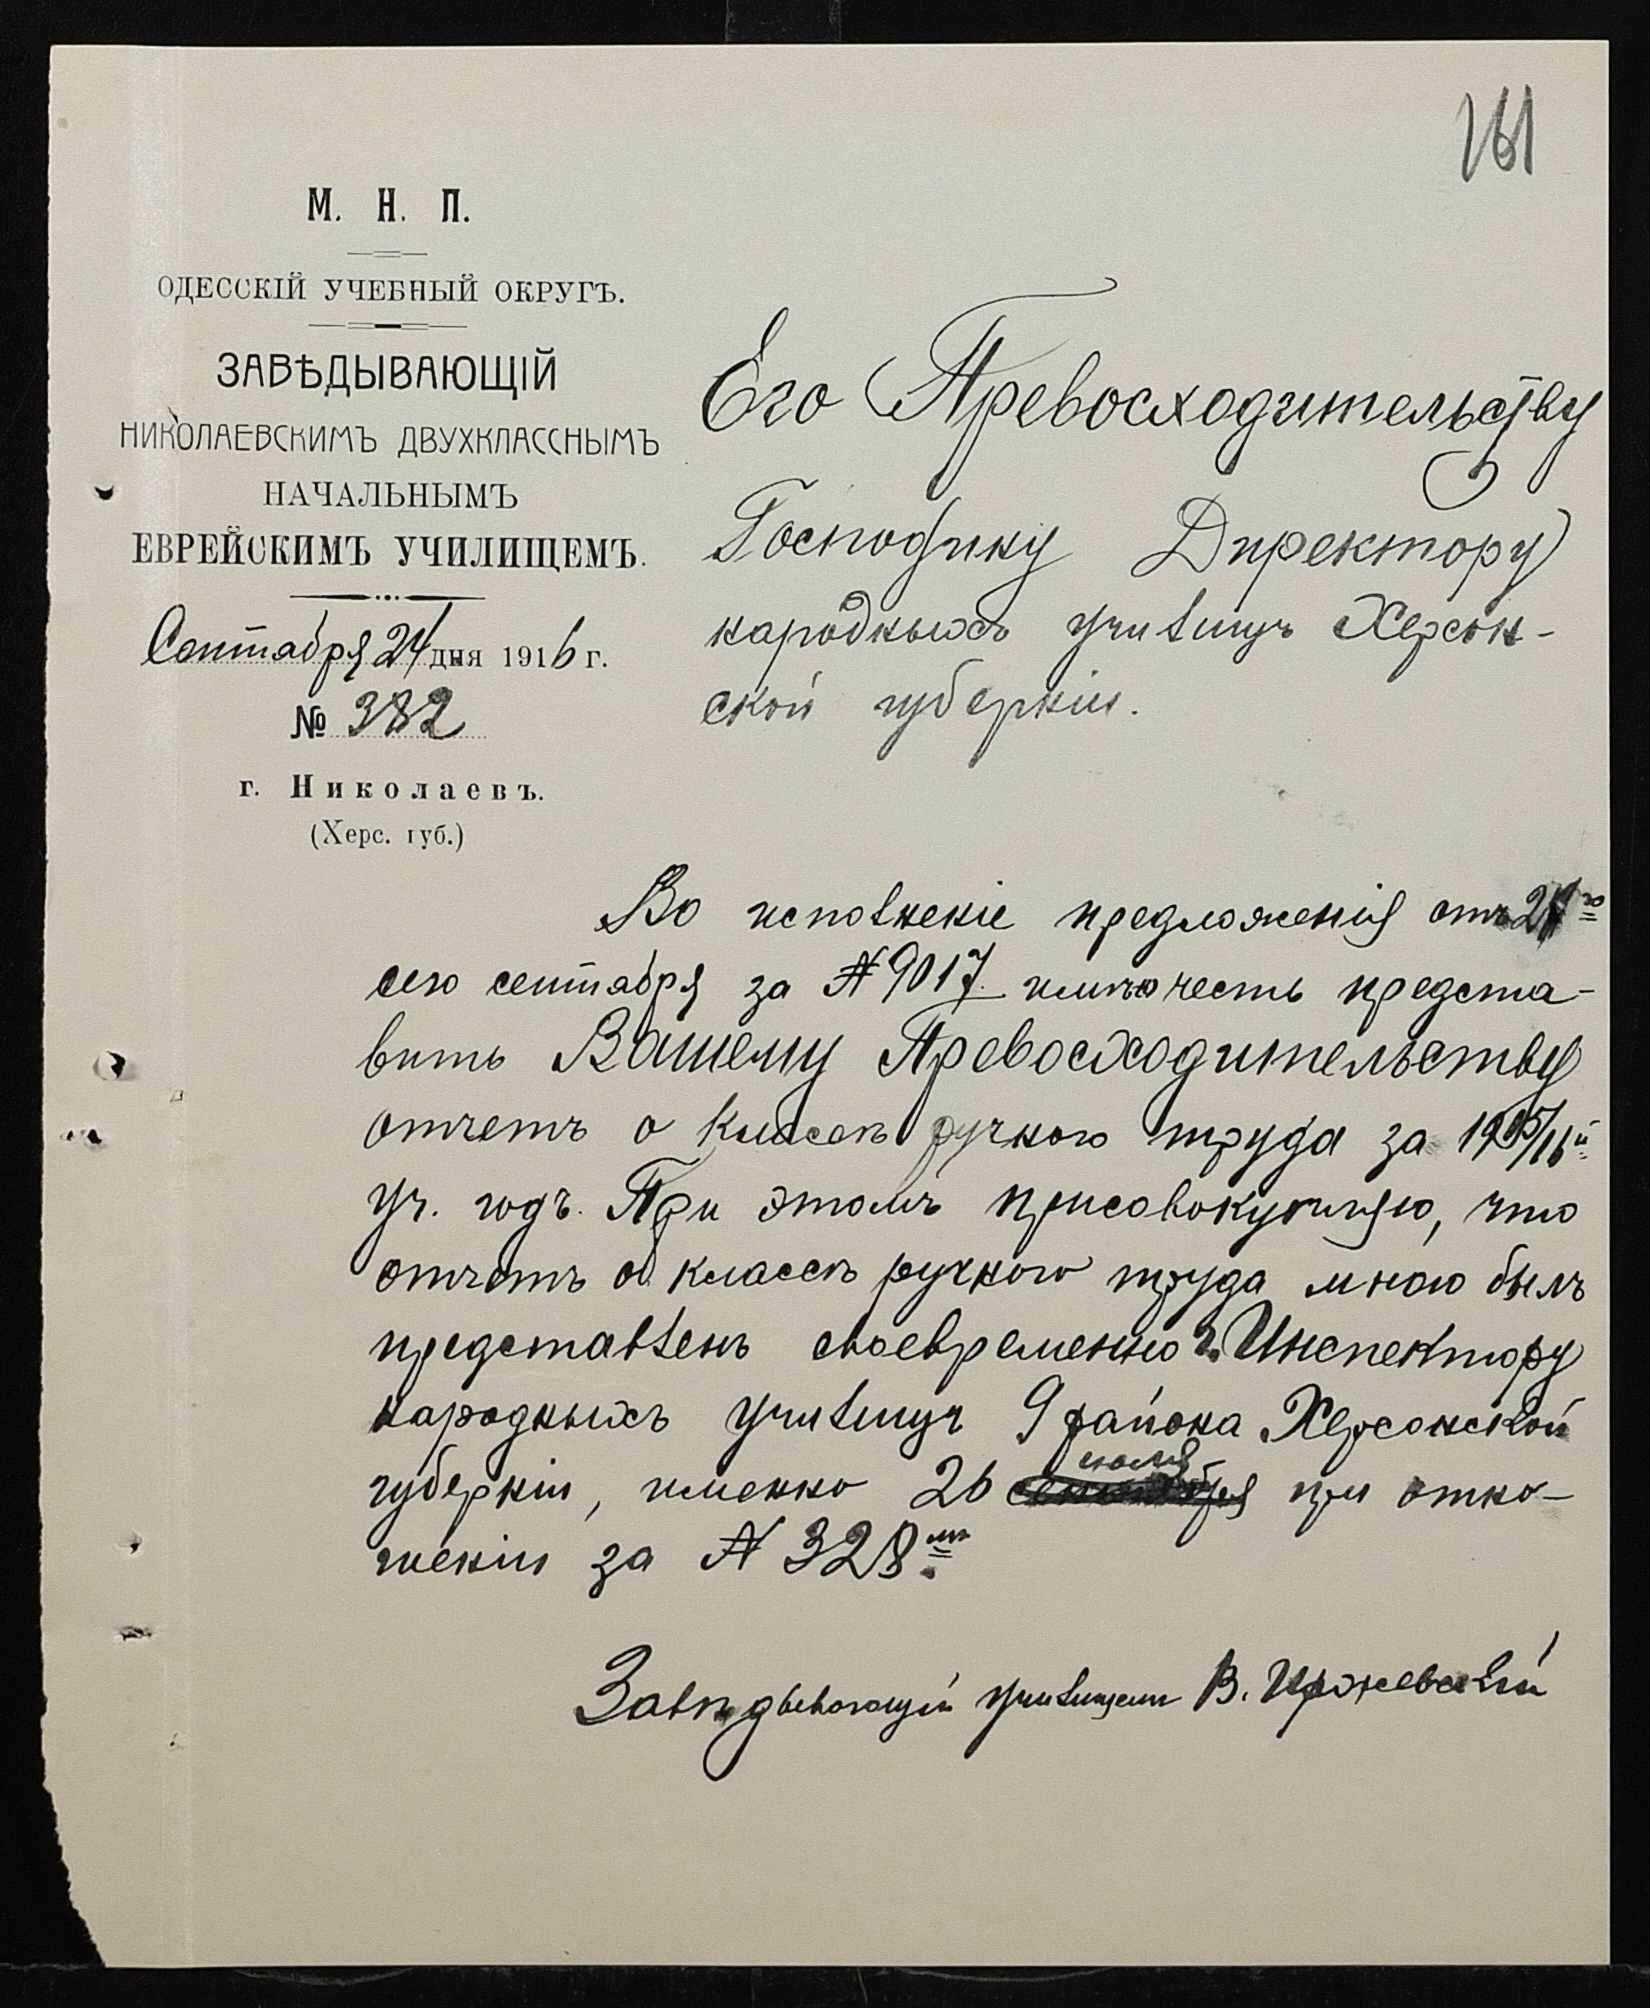 161
М. Н. П.
ОДЕССКІЙ УЧЕБНЫЙ ОКРУГЪ.
ЗАВѢДЫВАЮЩІЙ
НИКОЛАЕВСКИМЪ ДВУХКЛАССНЫМЪ
НАЧАЛЬНЫМЪ
ЕВРЕЙСКИМЪ УЧИЛИЩЕМЪ.
Сентября 24 дня 1916 г.
№ 382
г. Николаевъ.
(Херс. губ.)
Его Превосходительству
Господину Директору
народныхъ училищъ Херсон-
ской губерніи.
Во исполненіе предложенія отъ
сего сентября за № 9017 имѣю честь предста-
вить Вашему Превосходительству
отчетъ о классѣ ручного труда за 1915/16й
уч. годъ. При этомъ присовокупляю, что
отчетъ о классѣ ручного труда мною былъ
представленъ своевременно г. Инспектору
народныхъ училищъ 9 района Херсонской
губерніи, именно 26 іюля при отно-
шеніи за № 328мъ
Завѣдывающій училищемъ В.